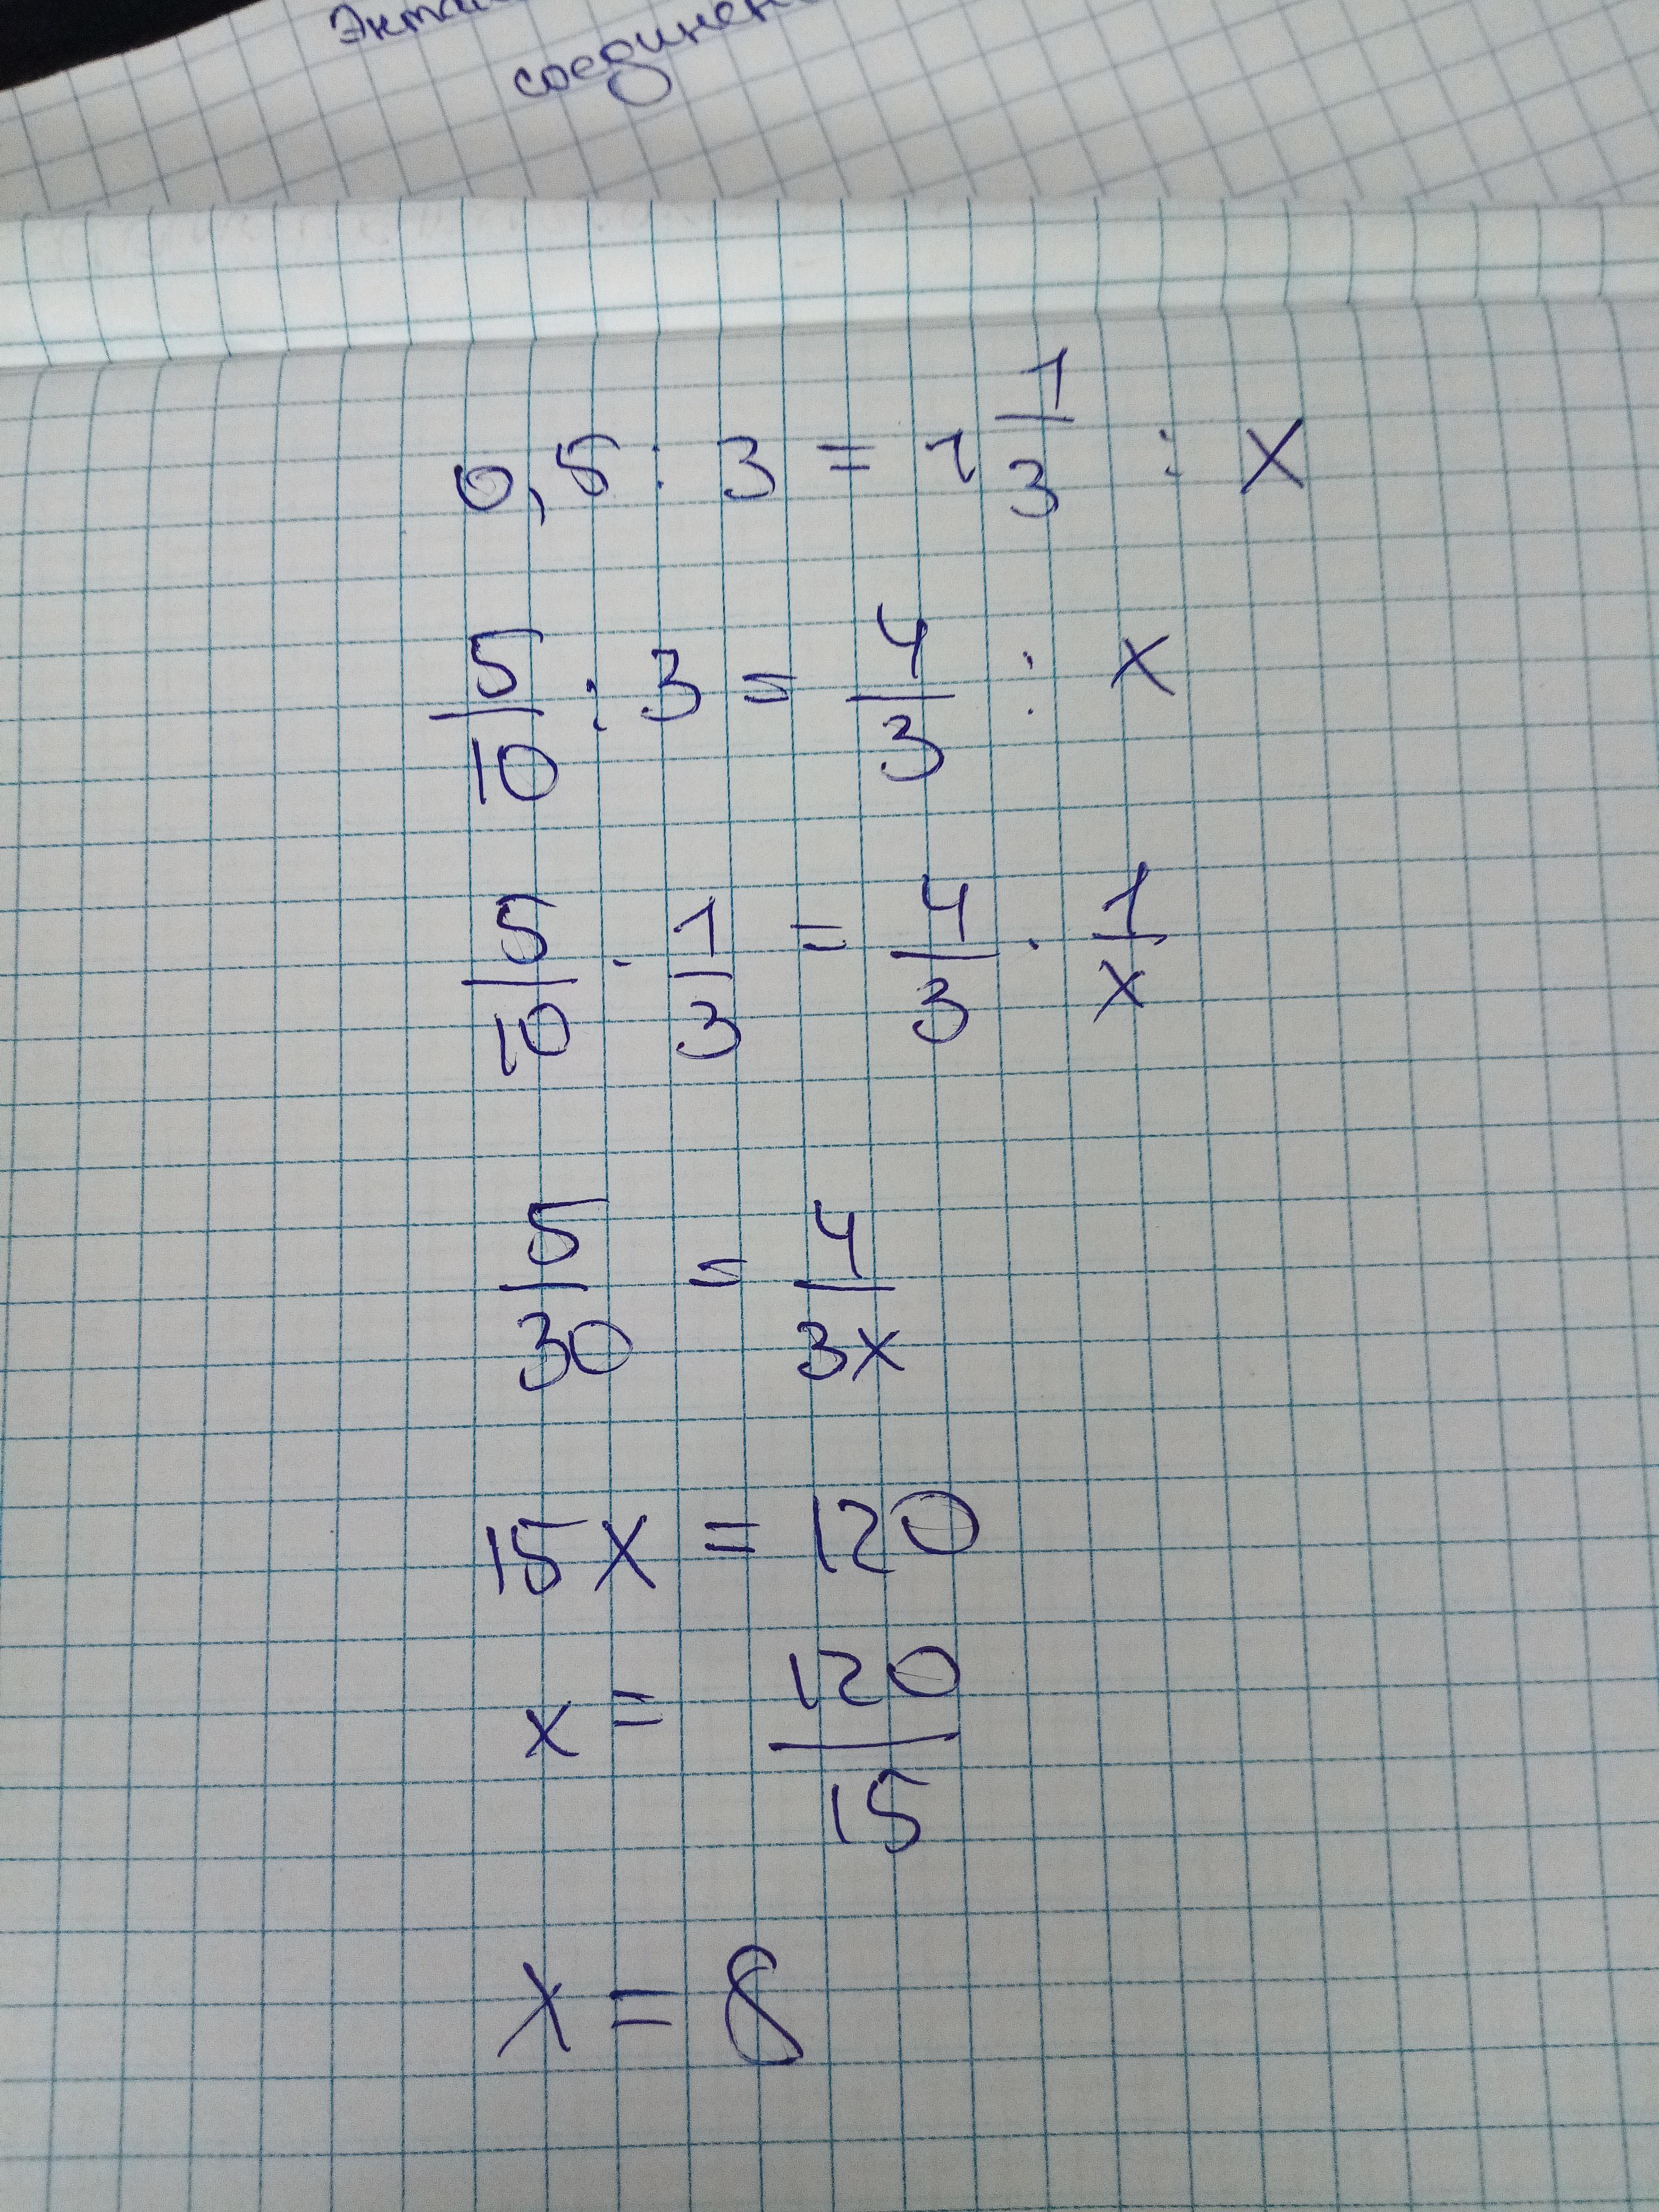 соедине
0,5 : 3 = 1 1/3 : x
5/10 : 3 = 4/3 : x
5/10 · 1/3 = 4/3 · 1/x
5/30 = 4/3x
15x = 120
x = 120/15
x = 8